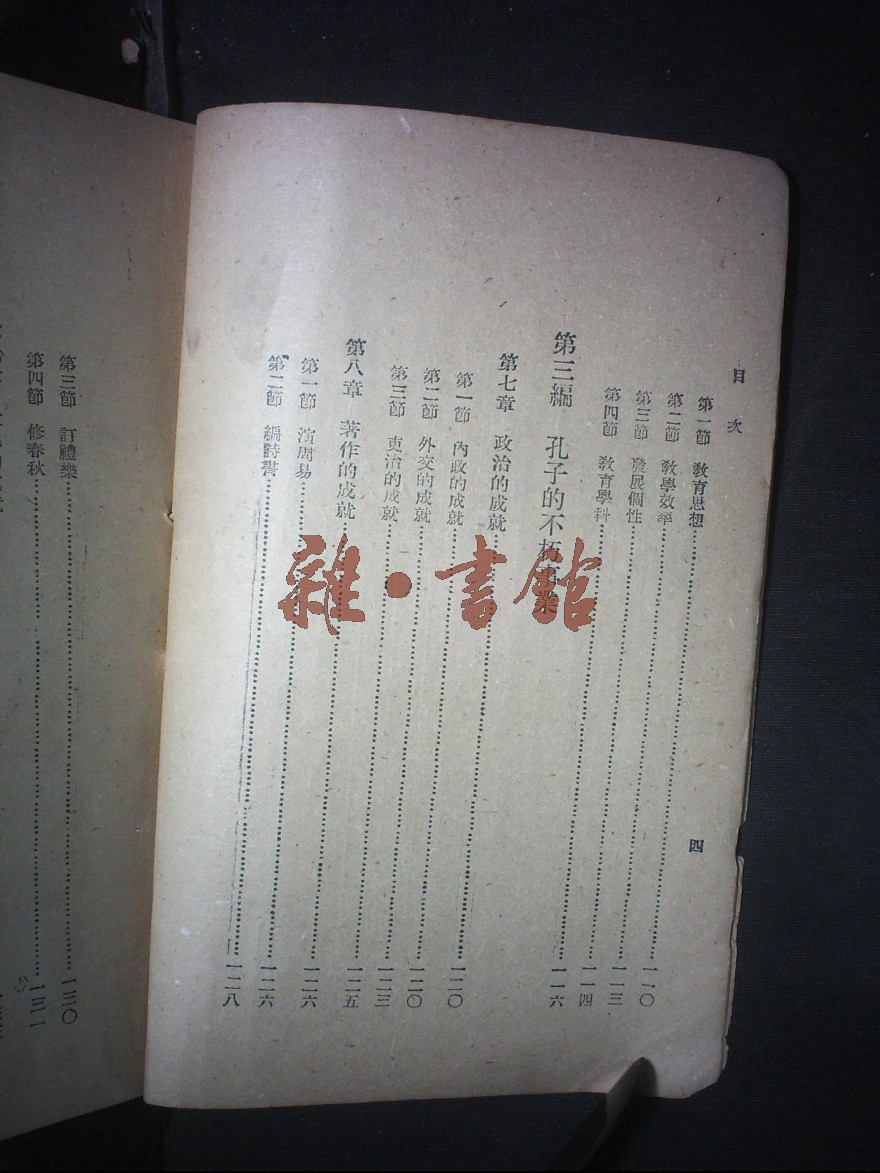 目次
四
第一節 教育思想……一一〇
第二節 教學效率……一一三
第三節 發展個性……一一四
第四節 教育學科……一一六
第三編 孔子的不朽事業
第七章 政治的成就……一二〇
第一節 內政的成就……一二〇
第二節 外交的成就……一二三
第三節 吏治的成就……一二五
第八章 著作的成就……一二六
第一節 演周易……一二六
第二節 編詩書……一二八
第三節 訂禮樂……一三〇
第四節 修春秋……
雜·書館